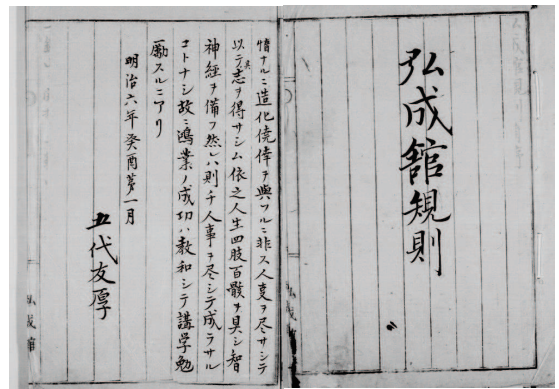 弘成館規則
弘成館
情ナルニ造化僥倖ヲ與フルニ非ス人事ヲ尽サシテ
以テ其志ヲ得サシム依之人生四肢百骸ヲ具シ智
神経ヲ備フ然ハ則チ人事ヲ尽シテ成ラサル
コトナシ故ニ鴻業ノ成功ハ教和シテ講学勉
励スルニアリ
明治六年癸酉第一月
五代友厚
弘成館